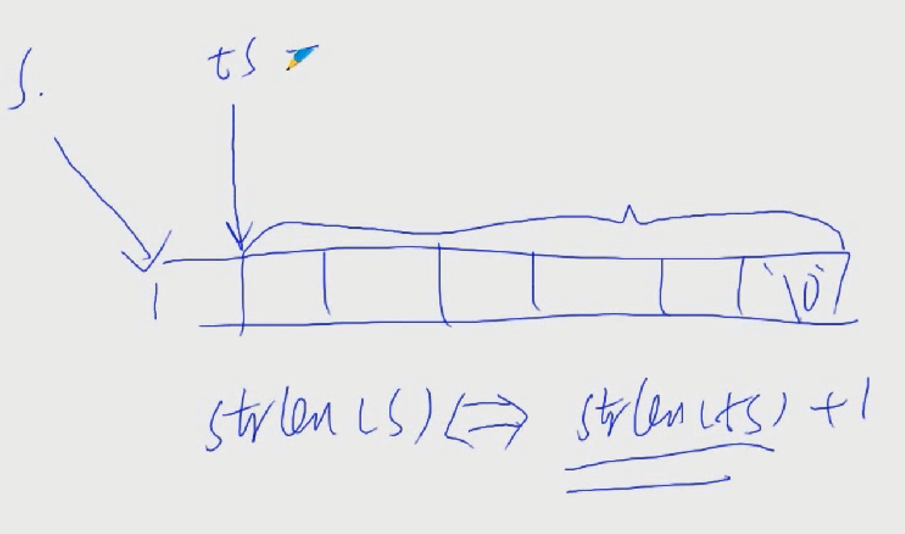 s. ts
'\0'
strlen(s) ⇔ strlen(ts) + 1